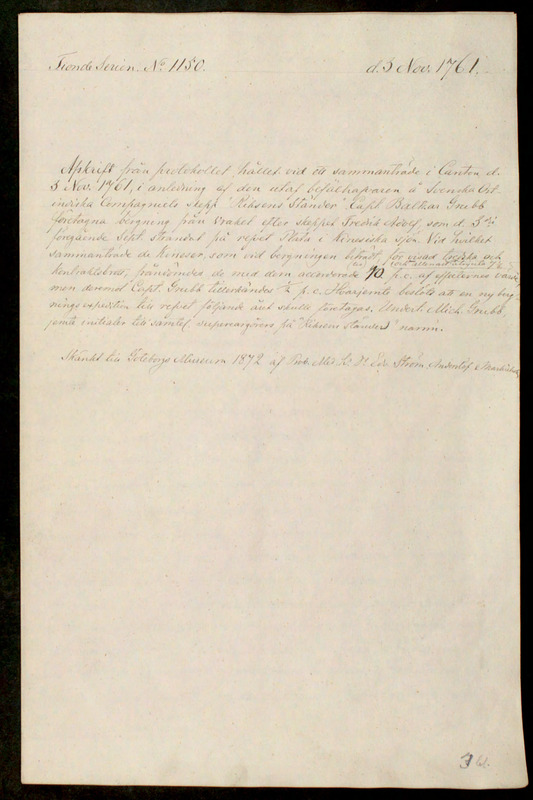 Tionde Serien. No 1150. d. 5 Nov. 1761.
Afskrift från protokollet hållet vid ett sammanträde i Canton d.
5 Nov. 1761, i anledning af den utaf befälhafvaren å Svenska Ost-
indiska Compagniets skepp "Riksens Ständer" Capt. Baltzar Grubb
företagna bergning från vraket efter skeppet Fredrik Adolf, som d. 3
föregående Sept. strandat på refvet Prata i Kinesiska sjön. Vid hvilket
sammanträde de Kineser, som vid bergningen biträdt, för visad och
kontraktsbrott, frånkändes de med dem accorderade 70 p.c. af effecternas värde,
men deremot Capt. Grubb tillerkändes p.c. Hvarjemte beslöts att en ny berg-
nings expedition till refvet följande året skulle företagas. Undert. Mich. Grubb
jemte initialer till samtl. supercargörers på "Riksens Ständers" namn.
Skänkt till Göteborgs Museum 1872 af Ström,
3 bl.